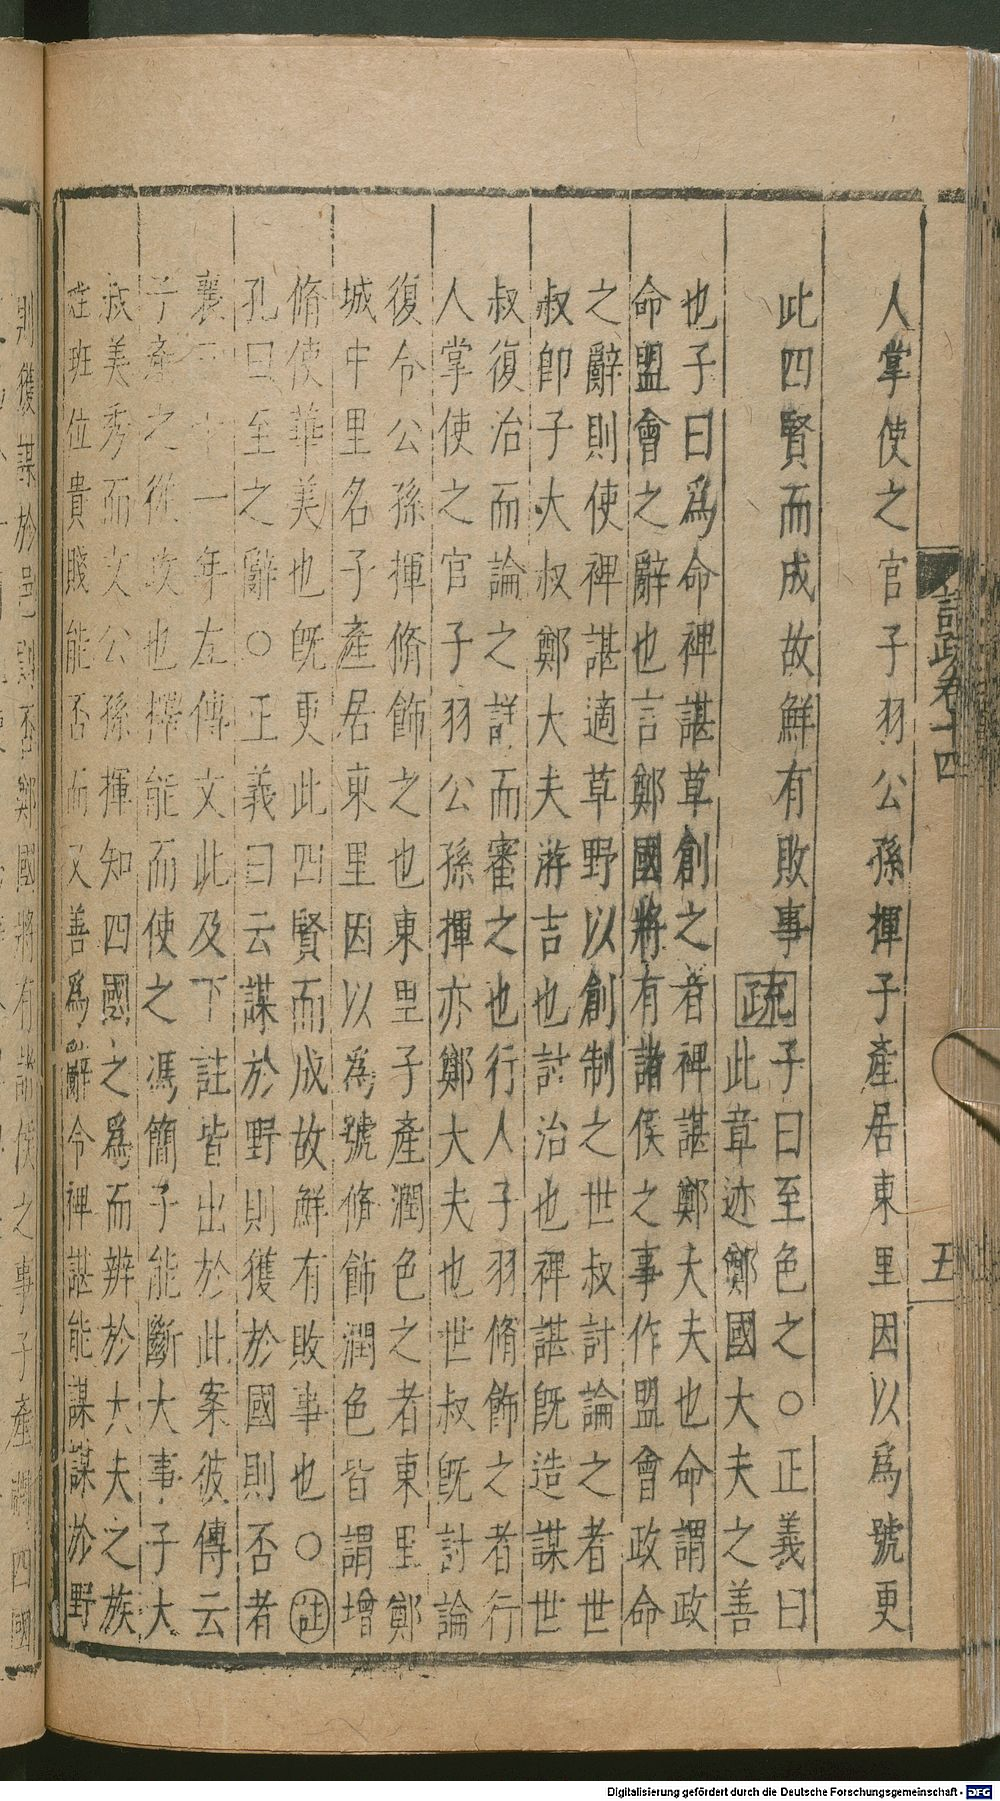 語疏卷十四 五
人掌使之官子羽公孫揮子產居東里因以爲號更
此四賢而成故鮮有敗事疏子曰至色之○正義曰
此章述鄭國大夫之善
也子曰爲命裨諶草創之者裨諶鄭大夫也命謂政
命盟會之辭也言鄭國將有諸侯之事作盟會政命
之辭則使裨諶適草野以創制之世叔討論之者世
叔卽子大叔鄭大夫游吉也討治也裨諶旣造謀世
叔復治而論之詳而審之也行人子羽脩飾之者行
人掌使之官子羽公孫揮亦鄭大夫也世叔旣討論
復令公孫揮脩飾之也東里子產潤色之者東里鄭
城中里名子產居東里因以爲號脩飾潤色皆謂增
脩使華美也旣更此四賢而成故鮮有敗事也○註
孔曰至之辭○正義曰云謀於野則獲於國則否者
襄三十一年左傳文此及下註皆出於此案彼傳云
子產之從政也擇能而使之馮簡子能斷大事子大
叔美秀而文公孫揮知四國之爲而辨於大夫之族
姓班位貴賤能否而又善爲辭令裨諶能謀謀於野
則獲謀於邑則否鄭國將有諸侯之事子產四國
Digitalisierung gefördert durch die Deutsche Forschungsgemeinschaft - DFG